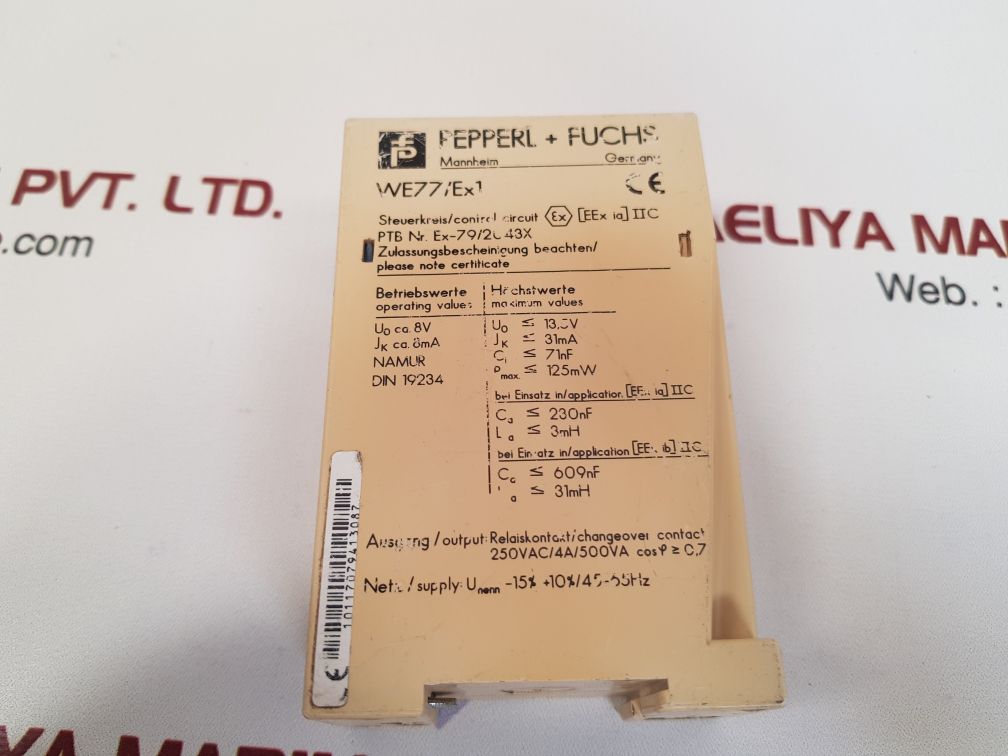 PVT. LTD.
AELIYA MA
Web. :
.com
PEPPERL + FUCHS
Mannheim Germany
WE77/Ex1
CE
Steuerkreis/control circuit Ex [EEx ia] IIC
PTB Nr. Ex-79/2043X
Zulassungsbescheinigung beachten/
please note certificate
Betriebswerte
operating values
U0 ca. 8V
JK ca. 8mA
NAMUR
DIN 19234
Höchstwerte
maximum values
U0 ≤ 13,5V
JK ≤ 31mA
Ci ≤ 71nF
Pmax. ≤ 125mW
bei Einsatz in/application [EEx ia] IIC
Ca ≤ 230nF
La ≤ 3mH
bei Einsatz in/application [EEx ib] IIC
Ca ≤ 609nF
La ≤ 31mH
Ausgang / output: Relaiskontakt/changeover contact
250VAC/4A/500VA cos φ ≥ 0,7
Netz / supply: Unenn -15% +10%/45-65Hz
CE 1011707941​3087
YA MARI